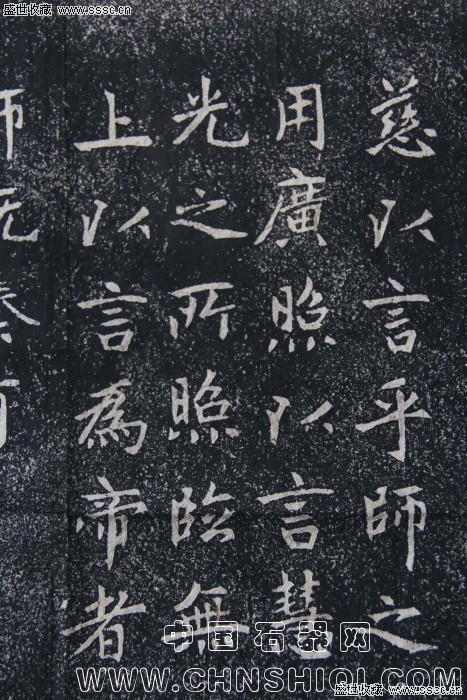 慈以言乎師之
用廣照以言慧
光之所照臨無
上以言為帝者
師既泰有
盛世收藏 www.sssc.cn
盛世收藏 www.sssc.cn
中国石器网
WWW.CHNSHIQI.COM
盛世收藏 www.sssc.cn